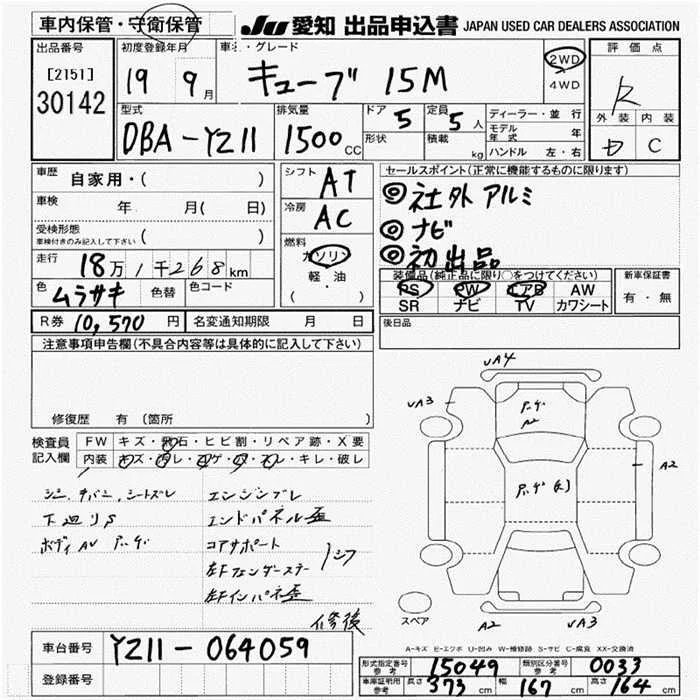 車内保管・守衛保管
JU 愛知 出品申込書 JAPAN USED CAR DEALERS ASSOCIATION
出品番号
[2151]
30142
初度登録年月
19 9月
車名・グレード
キューブ 15M
2WD
4WD
評価点
R
外装 内装
D C
型式
DBA-YZ11
排気量
1500CC
ドア 5
形状
定員 5人
積載 kg
ディーラー・並行
モデル年式 年
ハンドル 左・右
車歴 自家用・( )
車検 年 月( 日)
受検形態
車検付きのみ記入して下さい ( )
走行 18万1千268km
色 ムラサキ 色替 色コード
シフト AT
冷房 AC
燃料
ガソリン
軽・油
( )
セールスポイント(正常に機能するものに限ります)
◎社外アルミ
◎ナビ
◎初出品
装備品(純正品に限り○をつけてください)
PS PW エアB AW
SR ナビ TV カワシート
新車保証書
有・無
R券 10,570円 名変通知期限 月 日
後日品
注意事項申告欄(不具合内容等は具体的に記入して下さい)
修復歴 有 (箇所 )
検査員記入欄
FW キズ・飛石・ヒビ割・リペア跡・X要
内装 キズ・汚レ・コゲ・穴・スレ・キレ・破レ
下廻りS
エンジンブレ
エンドパネル歪
コアサポート
修後
UA4
UA3
A2
A2
A2
UA3
スペア
A-キズ E-エクボ U-凹み W-補修跡 S-サビ C-腐食 XX-交換済
車台番号 YZ11-064059
登録番号
形式指定番号 参考 15049 類別区分番号 参考 0033
車庫証明用 参考 長さ 373cm 幅 167cm 高さ 164cm